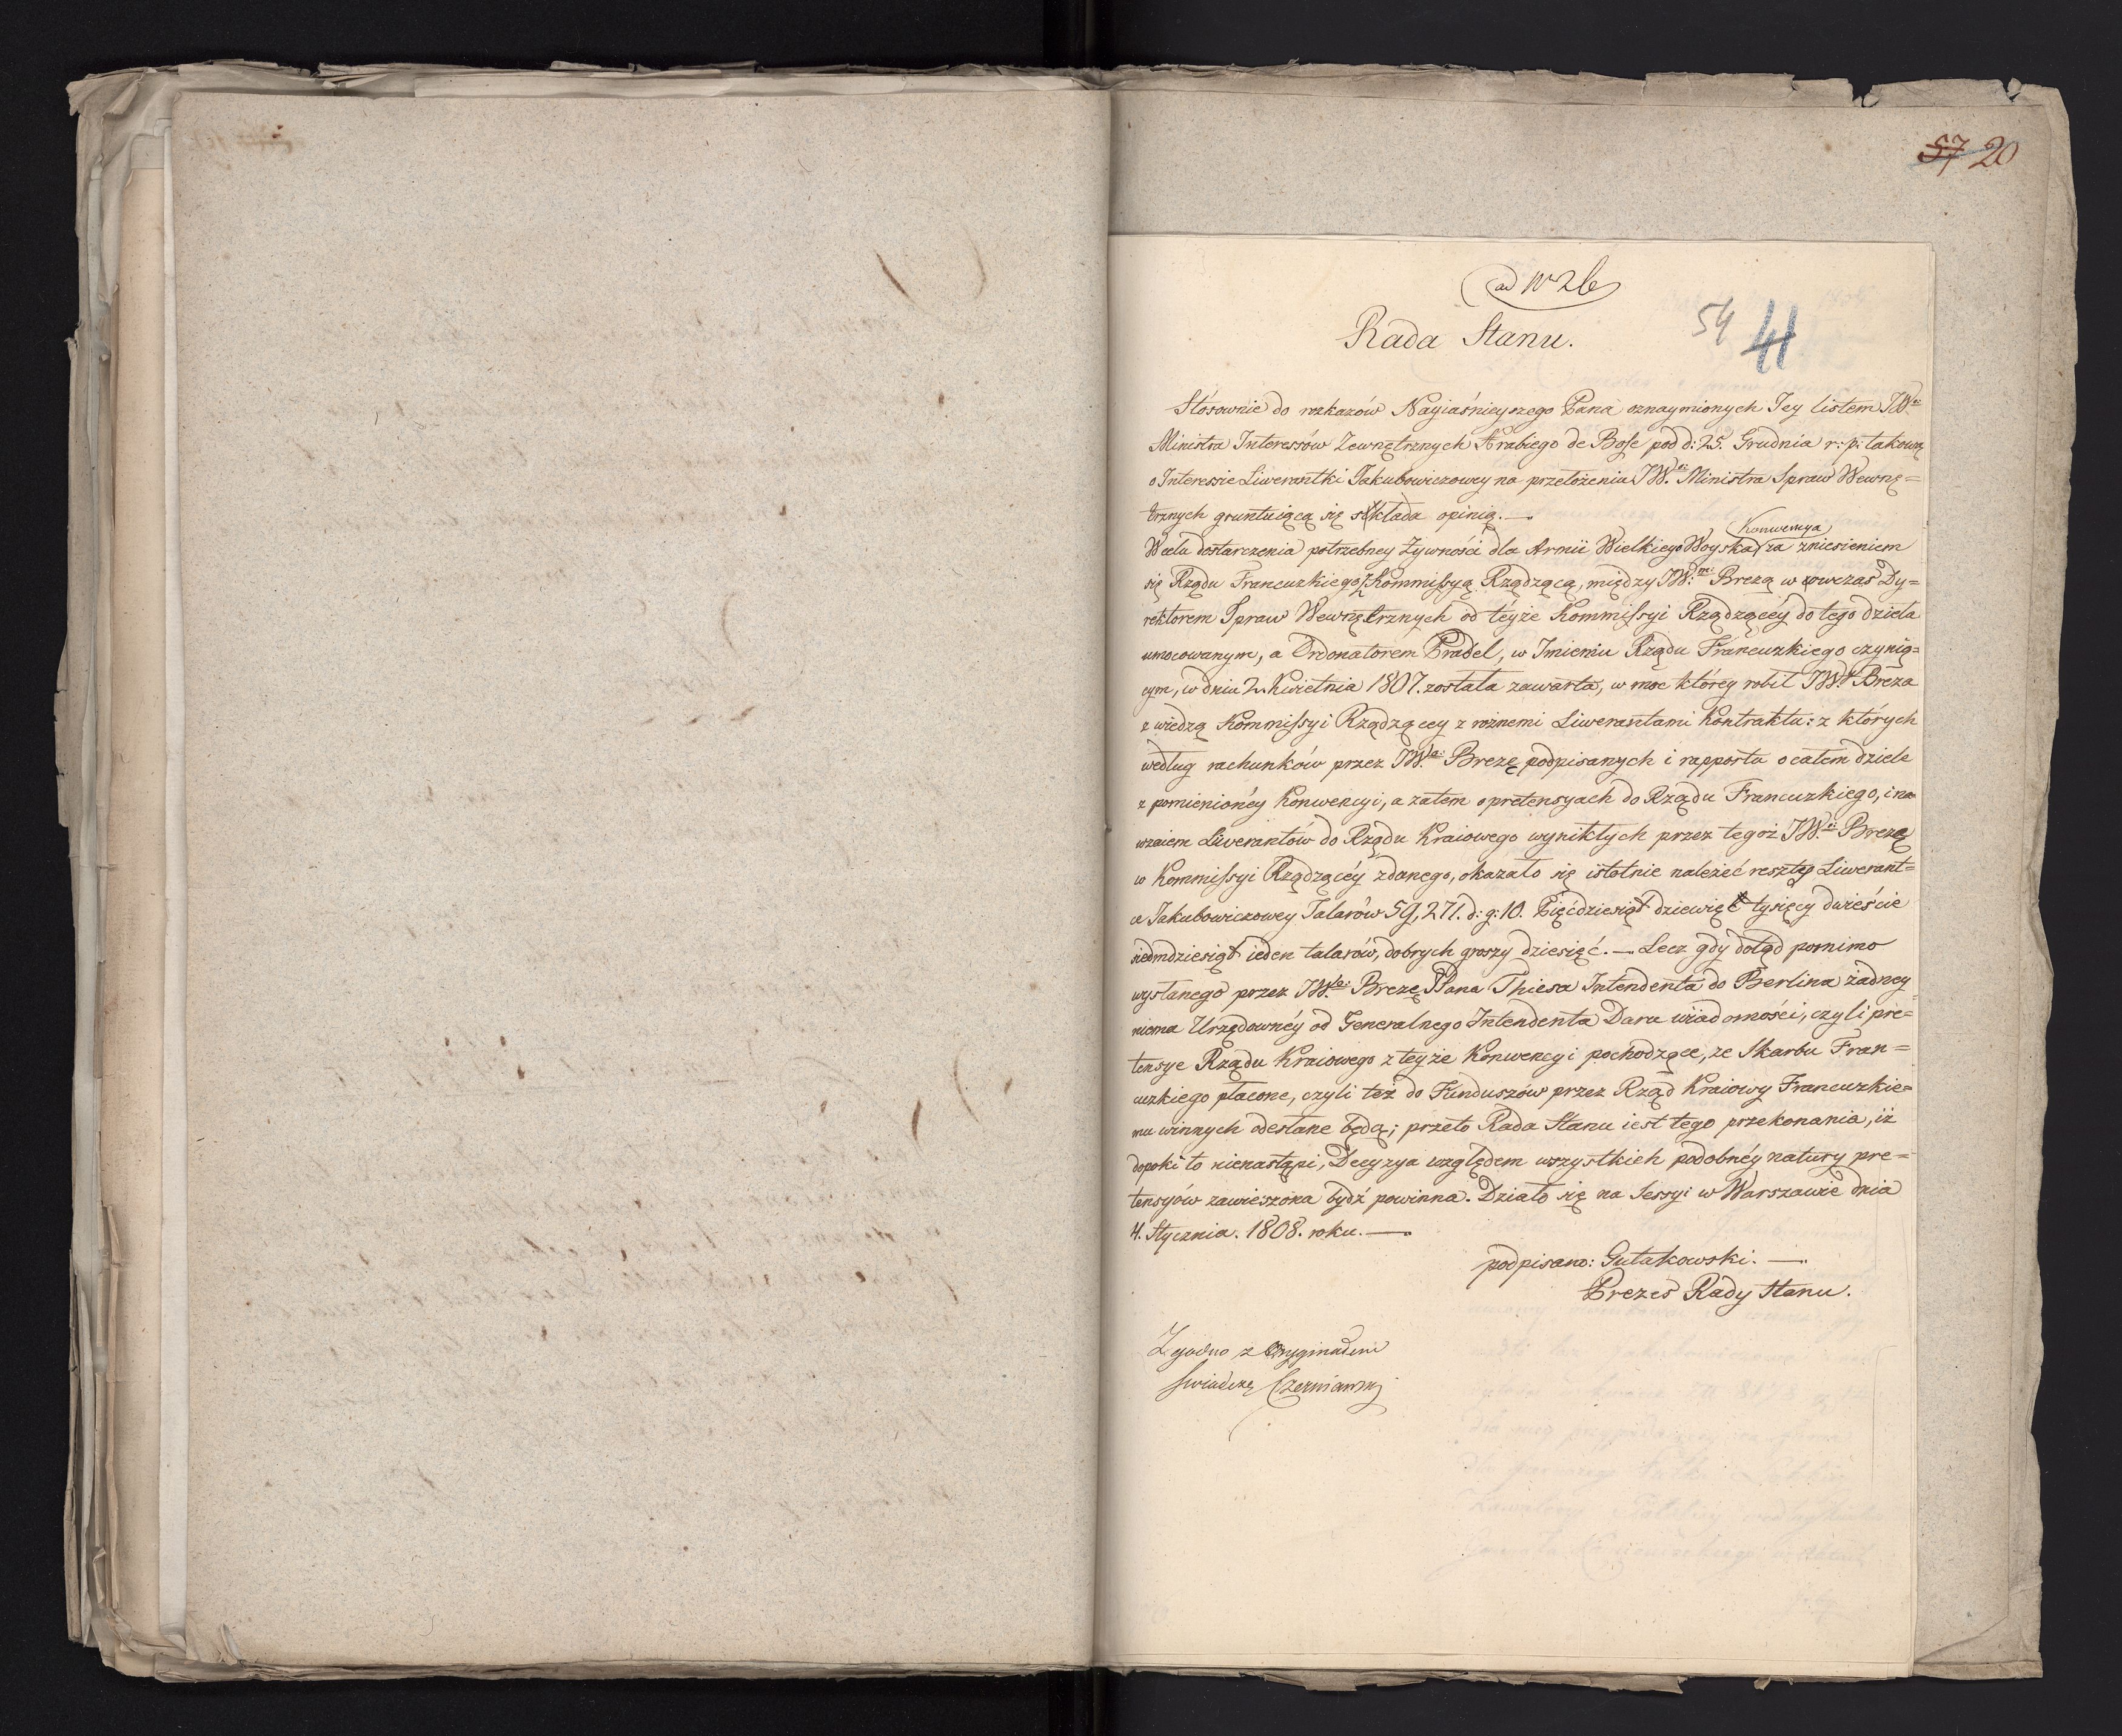 57 20
ad Nr 26
Rada Stanu.
54 41
Stósownie do rozkazów Nayiaśnieyszego Pana oznaymionych Jey listem JW.
Ministra Interessów Zewnętrznych Hrabiego de Bose pod d: 25. Grudnia r: p: takową
o Interessie Liwerantki Jakubowiczowey na przełożeniu JW. Ministra Spraw Wewnę=
trznych gruntuiącą się składa opinią. —
Konwencya
W celu dostarczenia potrzebney żywności dla Armii Wielkiego Woyska za zniesieniem
się Rządu Francuzkiego z Kommissyą Rządzącą, między JW. Brezą w owczas Dy=
rektorem Spraw Wewnętrznych od téyże Kommissyi Rządzącéy do tego dzieła
umocowanym, a Ordonatorem Pradel, w Imieniu Rządu Francuzkiego czynią=
cym, w dniu 2. Kwietnia 1807. została zawarta, w moc którey robił JW. Breza
z wiedzą Kommissyi Rządzącey z rożnemi Liwerantami Kontraktu: z których
według rachunków przez JW. Brezę podpisanych i rapportu o całem dziele
z pomienionéy Konwencyi, a zatem o pretensyach do Rządu Francuzkiego, i na
wzaiem Liwerantów do Rządu Kraiowego wynikłych przez tegoż JW. Brezę
w Kommissyi Rządzącéy zdanego, okazało się istotnie należeć resztę Liwerant=
ce Jakubowiczowey Talarów 59,271. d: g: 10. Pięćdziesiąt dziewięć tysięcy dwieście
siedmdziesiąt ieden talarów, dobrych groszy dziesięć. — Lecz gdy dotąd pomimo
wysłanego przez JW. Brezę Pana Thiesa Intendenta do Berlina żadney
niema Urzędownéy od Generalnego Intendenta Daru wiadomości, czyli pre=
tensye Rządu Kraiowego z teyże Konwencyi pochodzące, ze Skarbu Fran=
cuzkiego płacone, czyli też do Funduszów przez Rząd Kraiowy Francuzkie=
mu winnych odesłane będą; przeto Rada Stanu iest tego przekonania, iż
dopoki to nienastąpi, Decyzya względem wszystkich podobnéy natury pre=
tensyów zawieszona bydź powinna. Działo się na Sessyi w Warszawie dnia
4. Stycznia. 1808. roku. —
podpisano: Gutakowski. —
Prezes Rady Stanu.
Zgodno z Oryginałem
świadczę Czerniawski